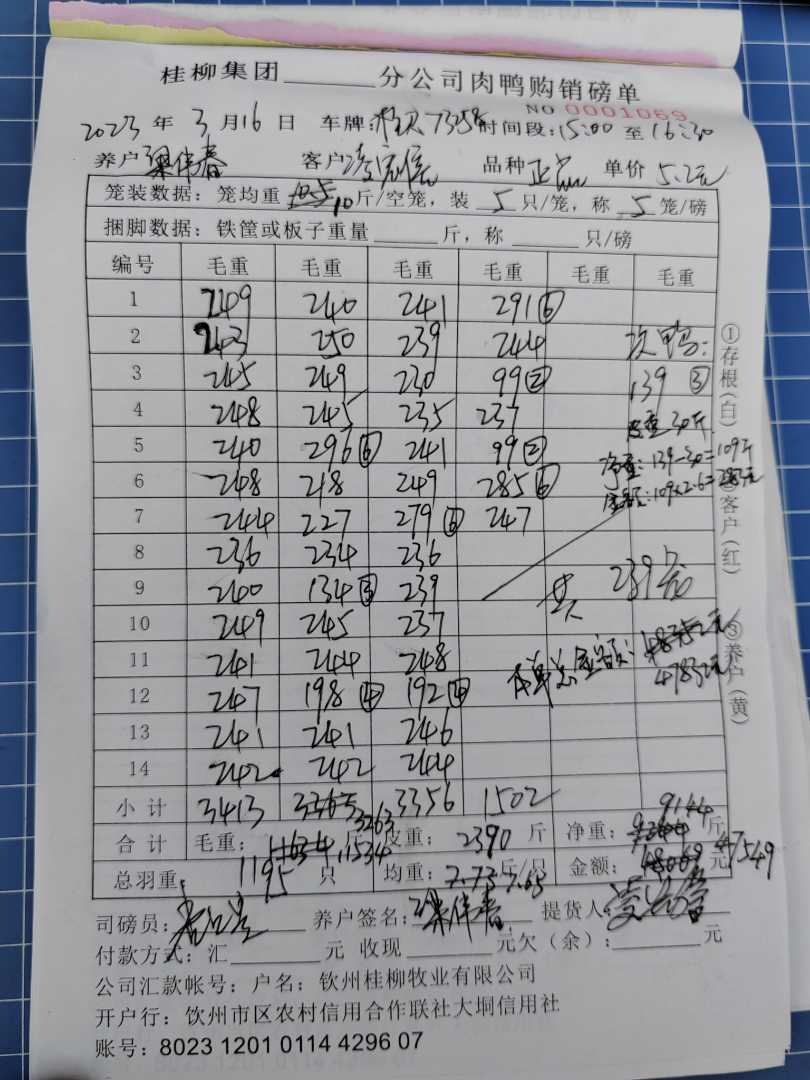 桂柳集团______分公司肉鸭购销磅单
NO 0001059
2023 年 3 月 16 日 车牌: 7358 时间段: 15:00 至 16:30
养户 梁伟春 客户 品种 正品 单价 5.2元
笼装数据: 笼均重 10 斤/空笼, 装 5 只/笼, 称 5 笼/磅
捆脚数据: 铁筐或板子重量______斤, 称______只/磅
编号 毛重 毛重 毛重 毛重 毛重 毛重
1 249 240 241 291⑥
2 243 250 239 244 次鸭:
3 245 249 230 99② 139③
4 248 245 235 237 皮重30斤
5 240 296⑥ 241 99② 净重: 139-30=109斤
6 248 218 249 285⑥ 金额: 109×2.6=283元
7 244 227 279⑥ 247
8 236 234 236
9 240 134③ 239 共 239笼
10 249 245 237
11 241 244 248 本单总金额:
12 247 198④ 192④ 47832元
13 241 241 246
14 242 242 244
小计 3413 3263 3356 1502
合计 毛重: 11534 斤 皮重: 2390 斤 净重: 9144 斤
总羽重: 1195 只 均重: 7.65 斤/只 金额: 47549 元
司磅员: 养户签名: 梁伟春 提货人:
付款方式: 汇______元 收现______元欠(余):______元
公司汇款帐号: 户名: 钦州桂柳牧业有限公司
开户行: 钦州市区农村信用合作联社大垌信用社
账号: 8023 1201 0114 4296 07
①存根(白) ②客户(红) ③养户(黄)